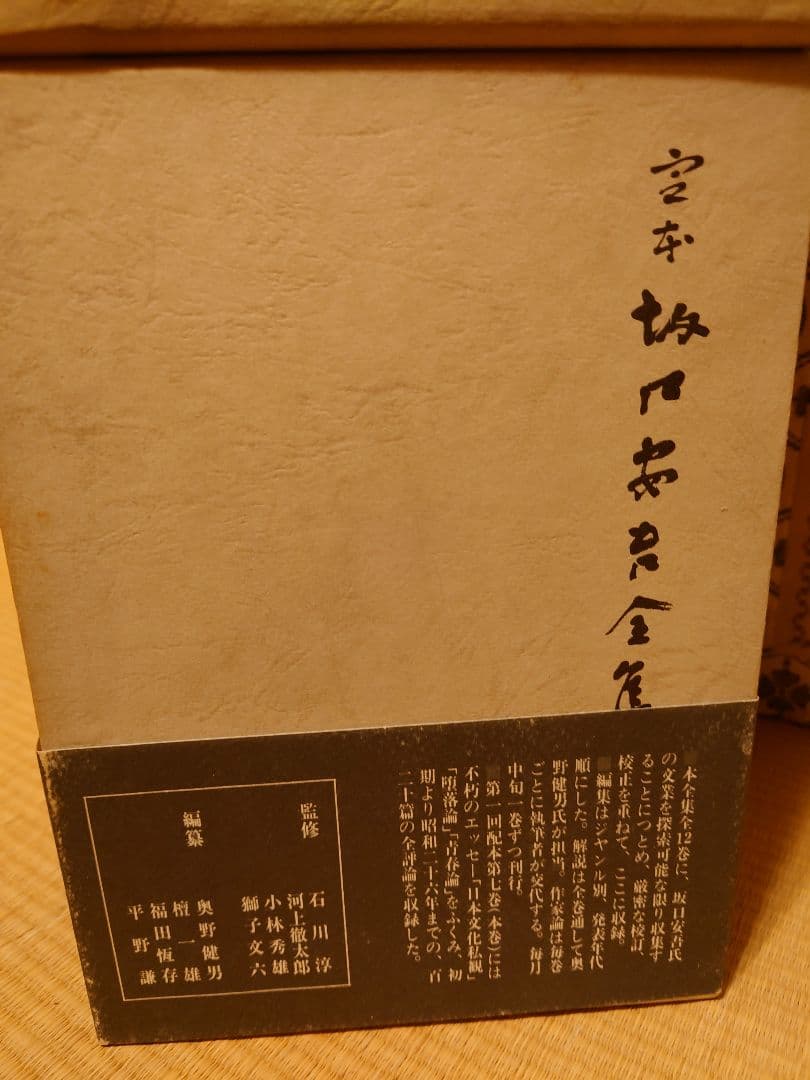 定本 坂口安吾全集
■本全集全12巻に、坂口安吾氏
の文業を探索可能な限り収集す
ることにつとめ、厳密な校訂、
校正を重ねて、ここに収録。
■編集はジャンル別、発表年代
順にした。解説は全巻通して奥
野健男氏が担当。作家論は毎巻
ごとに執筆者が交代する。毎月
中旬一巻ずつ刊行。
■第一回配本第七巻(本巻)には
不朽のエッセー「日本文化私観」
「堕落論」「青春論」をふくみ、初
期より昭和二十六年までの、百
二十篇の全評論を収録した。
監修
石川淳
河上徹太郎
小林秀雄
獅子文六
編纂
奥野健男
檀一雄
福田恆存
平野謙